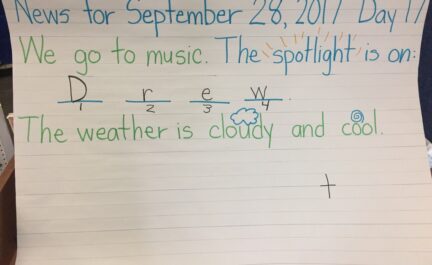 News for September 28, 2017 Day 17
We go to music. The spotlight is on:
D r e w.
1 2 3 4
The weather is cloudy and cool.
+